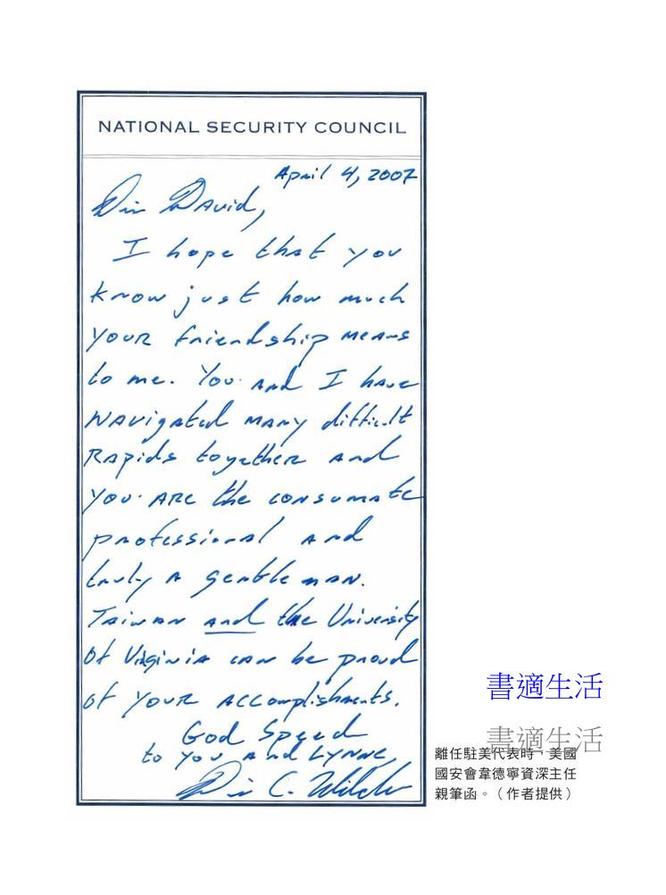 NATIONAL SECURITY COUNCIL
April 4, 2007
David,
I hope that you
know just how much
your friendship means
to me. You and I have
navigated many difficult
rapids together and
you are the consumate
professional and
truly a gentleman.
Taiwan and the University
of Virginia can be proud
of your accomplishments.
God Speed
to you and Lynne,
書適生活
書適生活
離任駐美代表時，美國
國安會韋德寧資深主任
親筆函。（作者提供）